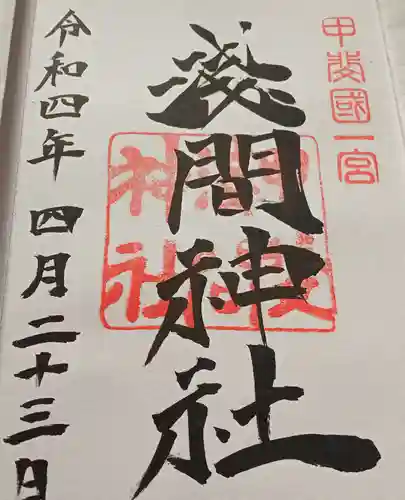 甲斐國一宮
淺間神社
淺間神社
令和四年 四月二十三日